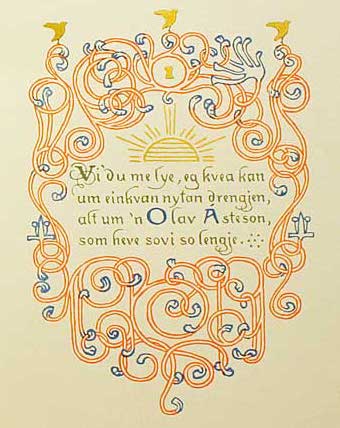 Vi' du me lye, eg kvea kan
um einkvan nytan drengjen,
alt um 'n Olav Åsteson,
som heve sovi so lengje.